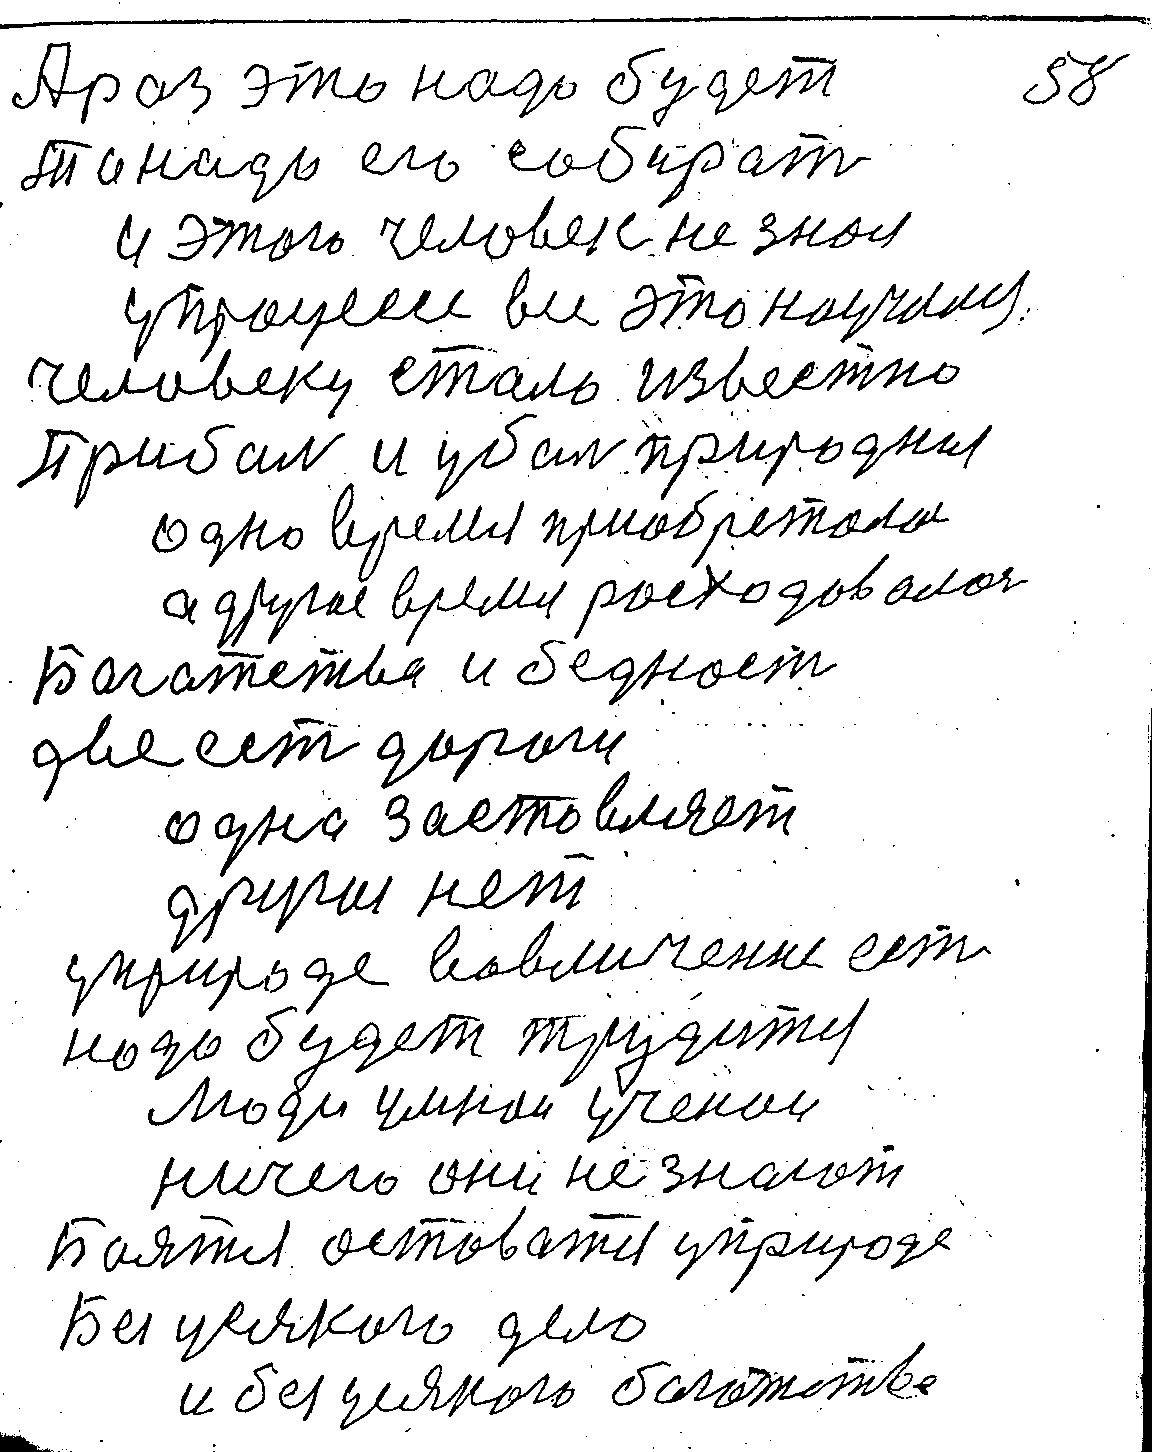 А раз это надо будет 58
то надо его собират
и этого человек не знал
у процессе все это научился
человеку стало известно
Прибал и убал природная
одно время приобреталас
а другое время росходовалос
Богатства и бедност
две ест дороги
одна заставляет
другая нет
у природе ест
надо будет трудится
Люди умнои ученои
ничего они не знают
Боятся оставатся у природе
Без усякого дело
и без усякого богатства